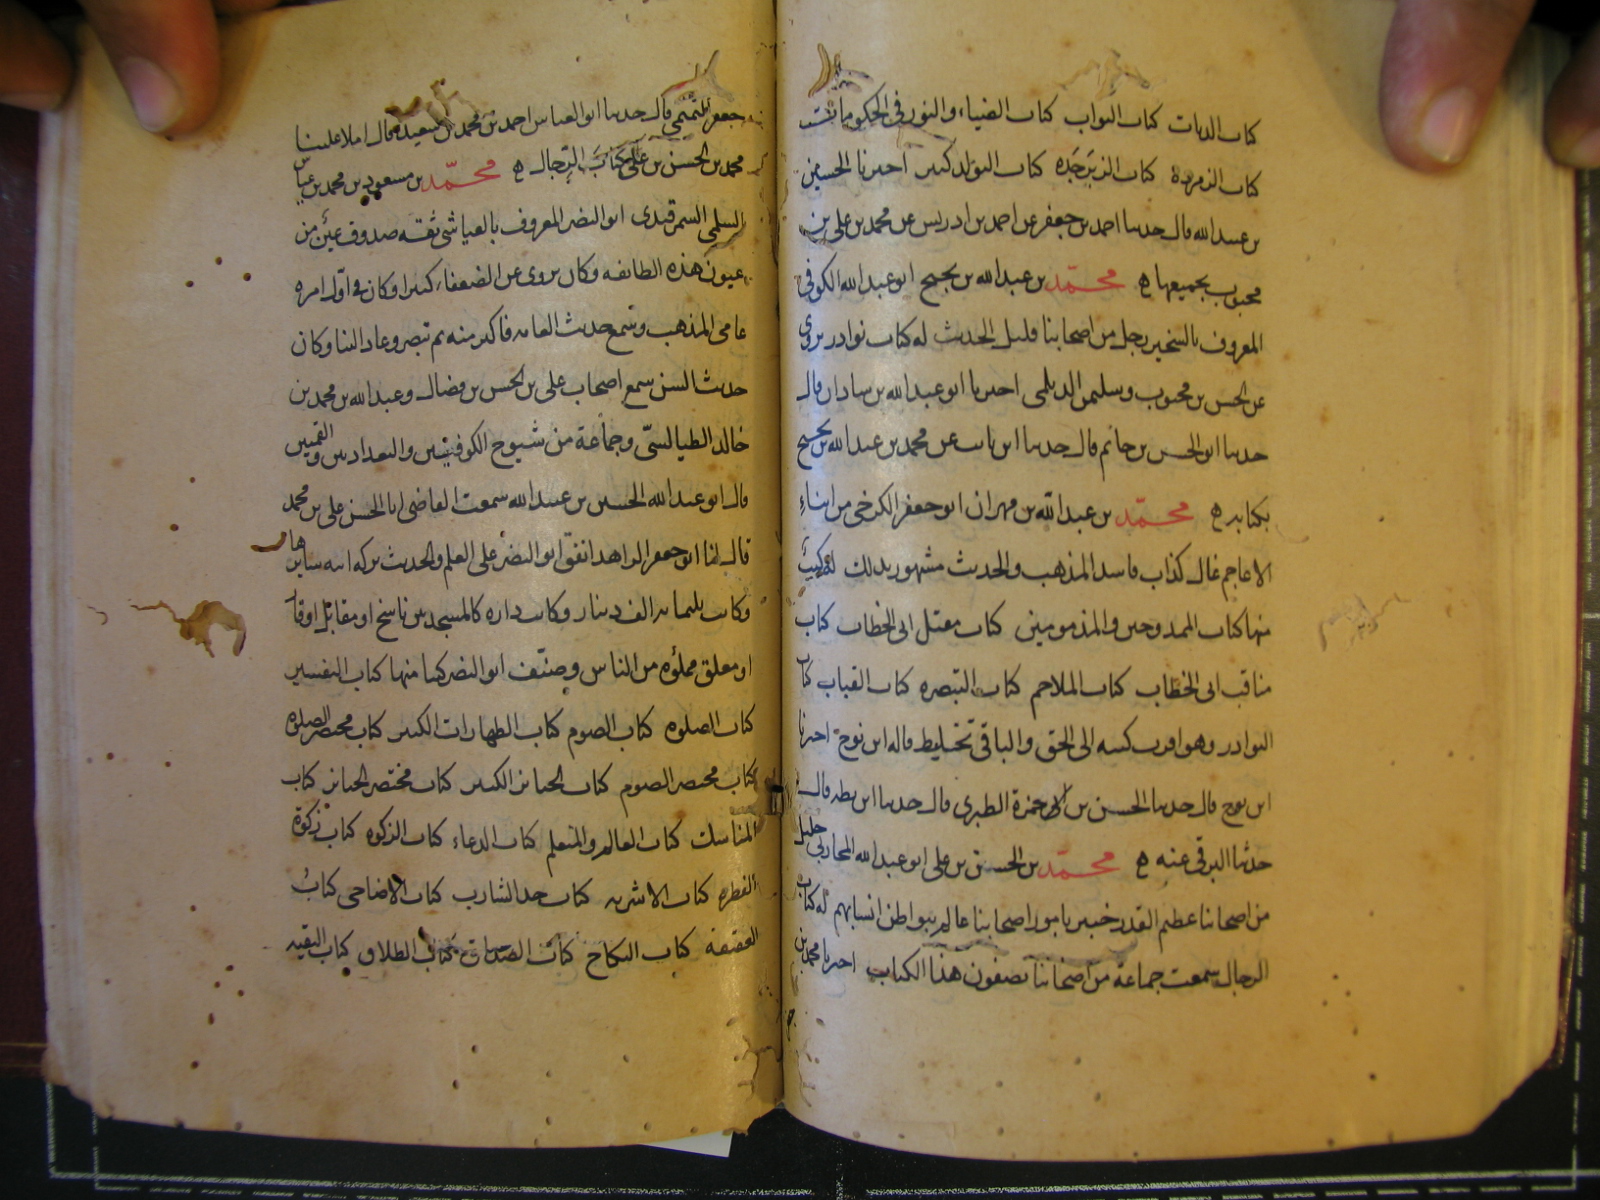 كتاب الديات كتاب الثواب كتاب الضياء والنور في الحكومات
كتاب الزمردة كتاب الزبرجدة كتاب التولد كبير اخبرنا الحسين
بن عبيد الله قال حدثنا احمد بن جعفر عن احمد بن ادريس عن محمد بن علي بن
محبوب بجميعها محمّد بن عبد الله بن نجيح ابو عبد الله الكوفي
المعروف بالسخير رجل من اصحابنا قليل الحديث له كتاب نوادر يروى
عن الحسن بن محبوب وسليمن الديلمي اخبرنا ابو عبد الله بن شاذان قال
حدثنا ابو الحسن بن حاتم قال حدثنا ابن ثابت عن محمد بن عبد الله بن نجيح
بكتابه محمّد بن عبد الله بن مهران ابو جعفر الكرخي من ابناء
الاعاجم غال كذاب فاسد المذهب والحديث مشهور بذلك له كتب
منها كتاب الممدوحين والمذمومين كتاب مقتل ابي الخطاب كتاب
مناقب ابي الخطاب كتاب الملاحم كتاب التبصرة كتاب القباب كتاب
النوادر وهو اقرب كتبه الى الحق والباقي تخليط قاله ابن نوح اخبرنا
ابن نوح قال حدثنا الحسن بن حمزة الطبري قال حدثنا ابن بطه قال
حدثنا البرقي عنه محمّد بن الحسن بن علي ابو عبد الله المحاربي جليل
من اصحابنا عظيم القدر خبير بامور اصحابنا عالم ببواطن انسابهم له كتاب
الرجال سمعت جماعة من اصحابنا يصفون هذا الكتاب اخبرنا محمد بن
جعفر التميمي قال حدثنا ابو العباس احمد بن محمد بن سعيد قال املا علينا
محمد بن الحسن بن علي كتاب الرجال محمّد بن مسعود بن محمد بن عياش
السلمي السمرقندي ابو النضر المعروف بالعياشي ثقة صدوق عين من
عيون هذه الطائفه وكان يروى عن الضعفاء كثيرا وكان في اوّل امره
عامي المذهب وسمع حديث العامه فاكثر منه ثم تبصر وعاد الينا وكان
حديث السن سمع اصحاب علي بن الحسن بن فضال وعبد الله بن محمد بن
خالد الطيالسيّ وجماعة من شيوخ الكوفيين والبغداديين والقميين
قال ابو عبد الله الحسين بن عبيد الله سمعت القاضي ابا الحسن علي بن محمد
قال لنا ابو جعفر الزاهد انفق ابو النضر على العلم والحديث تركه ابيه سايرها
وكانت ثلثمايه الف دينار وكانت داره كالمسجد بين ناسخ او مقابل او قا
او معلق مملؤه من الناس وصنّف ابو النضر كتبا منها كتاب التفسير
كتاب الصلوه كتاب الصوم كتاب الطهارات الكبير كتاب مختصر الصلوة
كتاب مختصر الصوم كتاب الجنائز الكبير كتاب مختصر الجنائز كتاب
المناسك كتاب العالم والمتعلم كتاب الدعاء كتاب الزكوه كتاب زكوة
الفطره كتاب الاشربه كتاب حد الشارب كتاب الاضاحي كتاب
العقيقه كتاب النكاح كتاب الصداق كتاب الطلاق كتاب التقيه